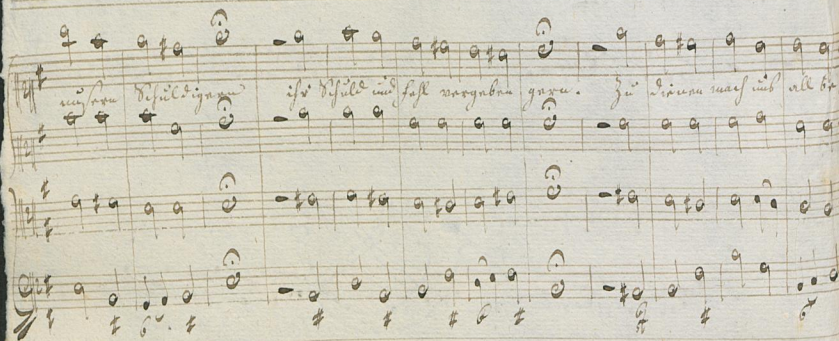 unsern Schuldigern ihr Schuld und fehl vergeben gern. Zu dienen mach uns all be